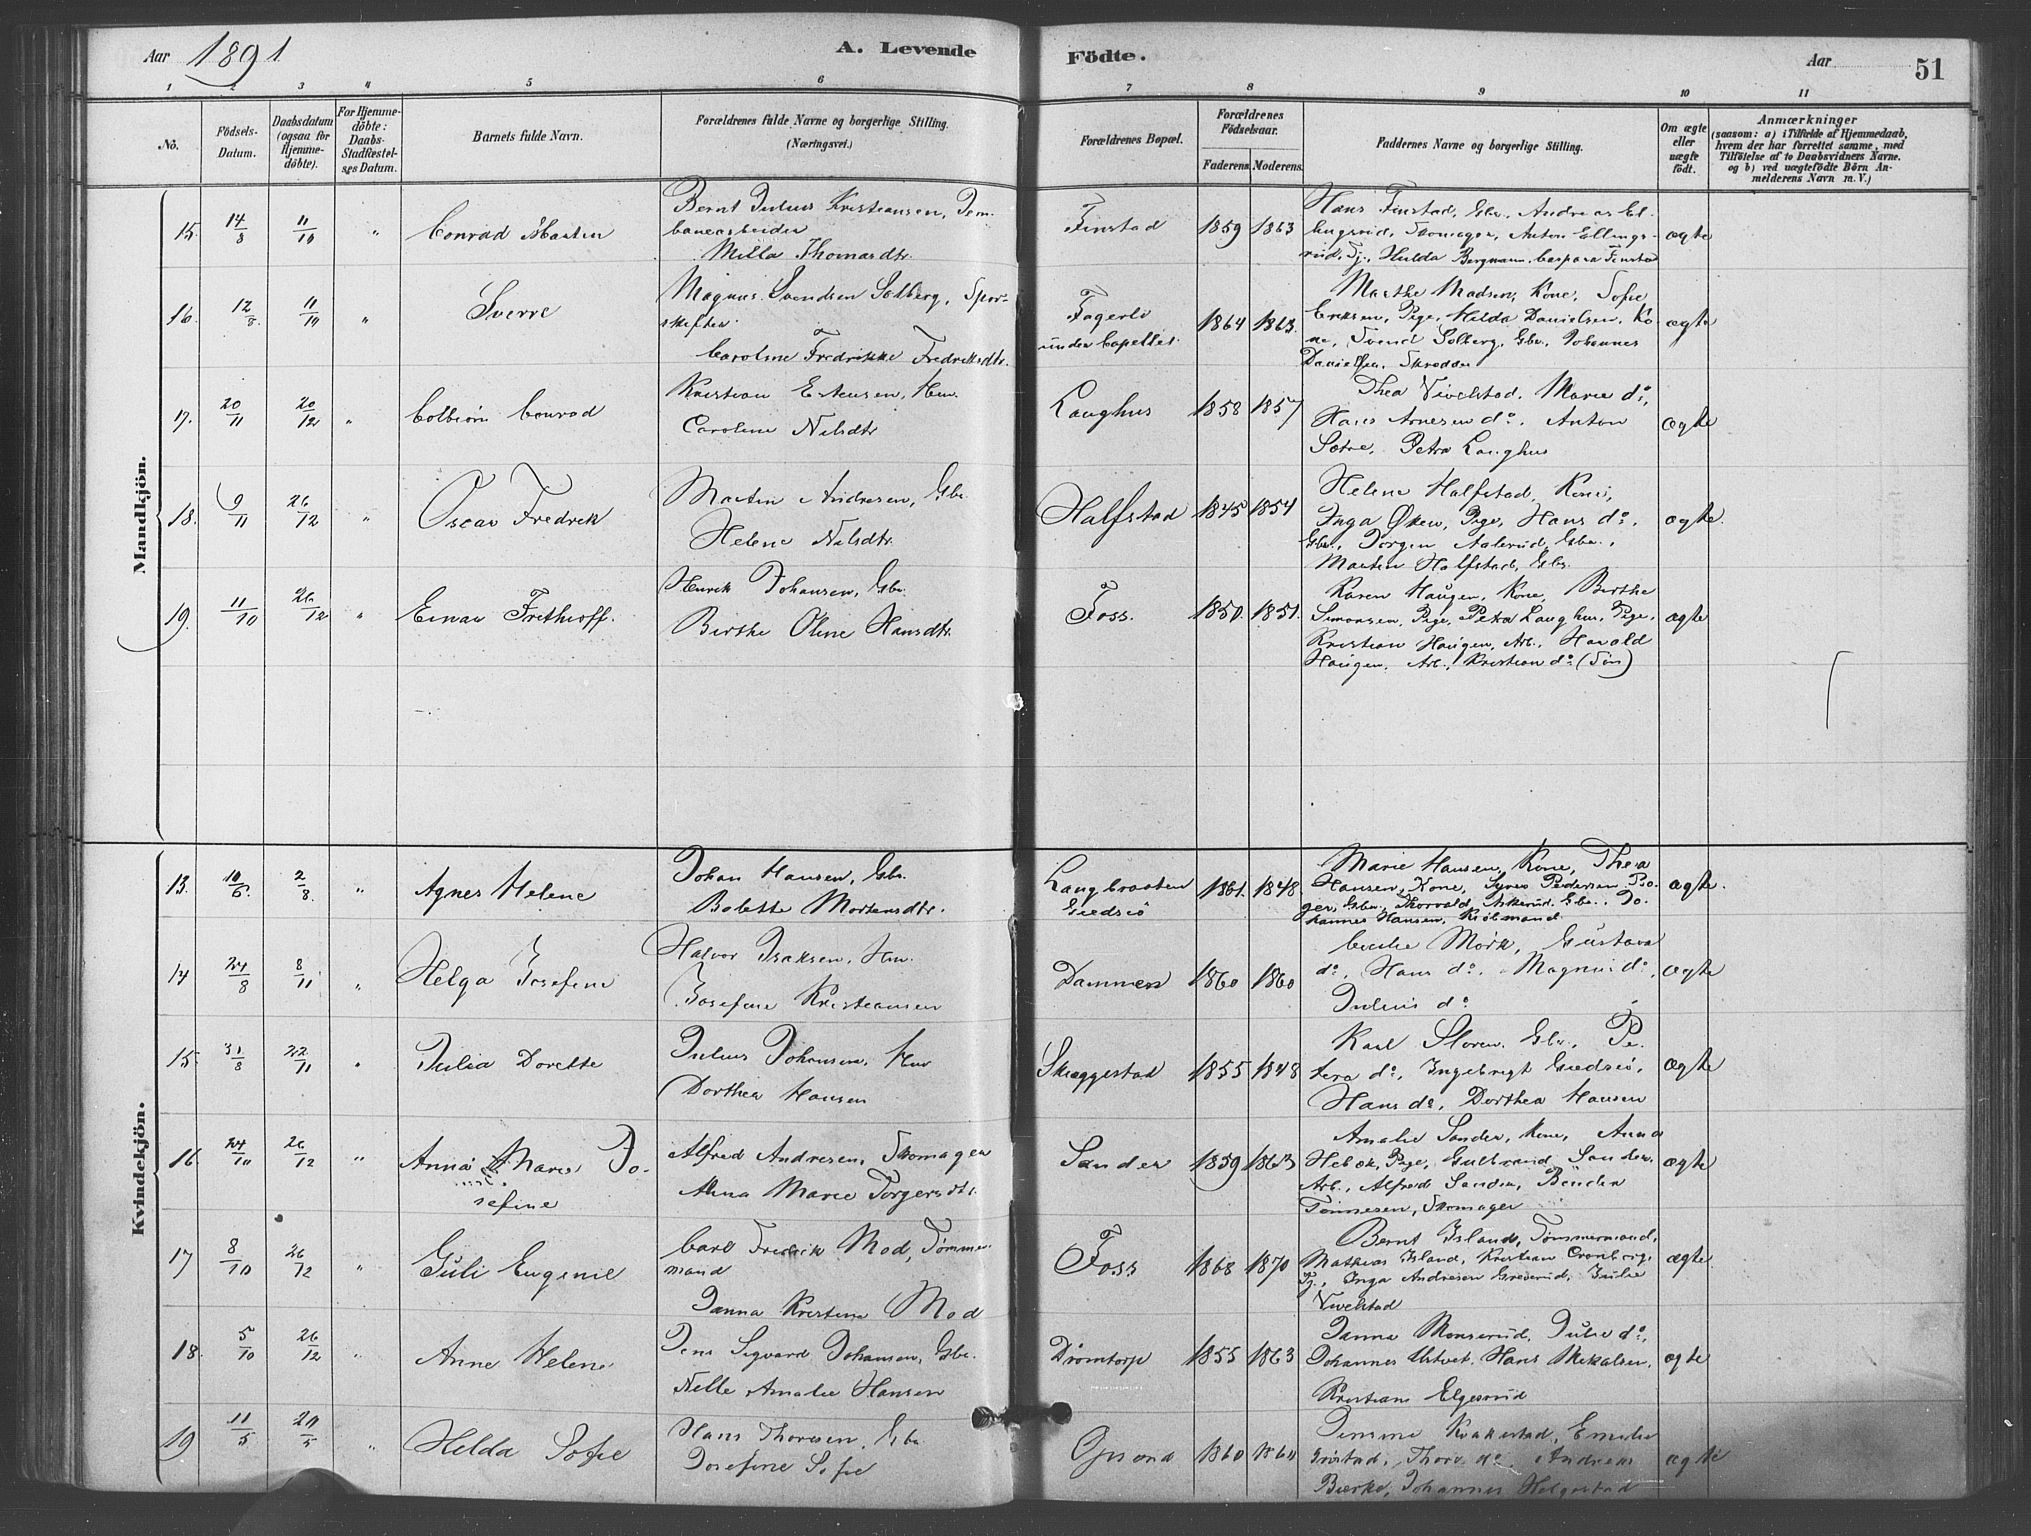 Aar 1891
A. Levende
Födte.
Aar
51
1 2 3 4 5 6 7 8 9 10 11
No.
Födsels-Datum.
Daabsdatum (ogsaa for Hjemmedöbte).
For Hjemmedöbte: Daabs-Stadfæstelses Datum.
Barnets fulde Navn.
Forældrenes fulde Navne og borgerlige Stilling. (Næringsvei.)
Forældrenes Bopæl.
Forældrenes Födselsaar.
Faderens. Moderens.
Faddernes Navne og borgerlige Stilling.
Om ægte eller uægte födt.
Anmærkninger
(saasom: a) i Tilfælde af Hjemmedaab, hvem der har forrettet samme, med Tilföielse af to Daabsvidners Navne. og b) ved uægtefödte Börn Anmelderens Navn m. V.)
Mandkjön.
15. 14/8 11/10 " Conrad Martin
Bernt Julius Kristiansen, Jernbanearbeider
Milla Thomasdtr.
Finstad 1859 1863
Hans Finstad, Gbr., Andreas Ellingsrud, Skomager, Anton Ellingsrud, Tj., Hulda Bergmann, Caspara Finstad
ægte
16. 12/8 11/10 " Sverre
Magnus Svendsen Solberg, Sporskifter
Caroline Fredrikke Fredriksdtr.
Fagerli under Capellet. 1864 1863.
Marthe Madsen, Kone, Sofie Eriksen, Pige, Hilda Danielsen, Kone, Svend Solberg, Gbr., Johannes Danielsen, Skrædder
ægte
17. 20/11 20/12 " Colbiörn Conrad
Kristian Estensen, Hm.
Caroline Nilsdtr
Langhus 1858 1857
Thea Vivelstad, Marie do, Hans Arnesen do, Anton Sætre, Petra Langhus
ægte
18. 9/11 26/12 " Oscar Fredrik
Martin Andresen, Gbr.
Helene Nilsdtr.
Halfstad 1845 1854
Helene Halfstad, Kone, Inga Øken, Pige, Hans do, Gbr., Jørgen Aslerud, Gbr., Martin Halfstad, Gbr.
ægte.
19. 11/10 26/12 " Einar Frithioff.
Henrik Johansen, Gbr.
Birthe Oline Hansdtr.
Foss. 1850. 1851.
Karen Haugen, Kone, Birthe Simonsen, Pige, Petra Langhus, Pige, Kristian Haugen, Arb., Harald Haugen, Arb., Kristian do (Søn)
ægte
Kvindekjön.
13. 10/6 2/8. " Agnes Helene
Johan Hansen, Gbr.
Bolette Mortensdtr.
Langbraaten Giedsiö 1851. 1848.
Marie Hansen, Kone, Thea Hansen, Kone, Syver Pedersen, Gbr., Thorvald Askerud, Gbr., Johannes Hansen, Kiöbmand
ægte.
14 24/8 8/11 " Helga Josefine
Halvor Isaksen, Hm.
Josefine Kristiansen
Dammen 1860 1860
Cecilie Mörk, Gustava do, Hans do, Magnus do, Julius do
ægte
15 31/8 22/11 " Julia Dorette
Julius Johansen, Hm
Dorthea Hansen
Skæggestad 1855 1848
Karl Sloren, Gbr., Petera do, Ingebrigt Giedsiö, Hans do, Dorthea Hansen
ægte
16. 24/10 26/12 " Anna Marie Josefine
Alfred Andresen, Skomager
Anna Marie Torgersdtr.
Sander 1859 1863
Amalie Sander, Kone, Anna Hebek, Pige, Gulbrand Sander, Arb., Alfred Sander, Bönder Tönnesen, Skomager
ægte
17 8/10 26/12 " Guli Eugenie
Carl Fredrik Mod, Tømmermand
Janna Kristine Mod
Foss 1868 1870
Bernt Island, Tømmermand, Mathias Island, Kristian Cronborg, Tj., Inga Andresen Grøderud, Julie Vivelstad
ægte
18. 5/10 26/12 " Anne Helene
Jens Sigvard Johansen, Gbr.
Nelle Amalie Hansen
Drømtorp 1855 1863
Janna Monserud, Julie do, Johannes Ustvet, Hans Mikalsen, Kristians Elgesrud
ægte
19 11/5 24/5 " Helda Sofie
Hans Thoresen, Gbr
Josefine Sofie
Opsand 1860 1860
Jensine Kraakestad, Emilie Finstad, Thora do, Andreas Bierke, Johannes Helgestad
ægte